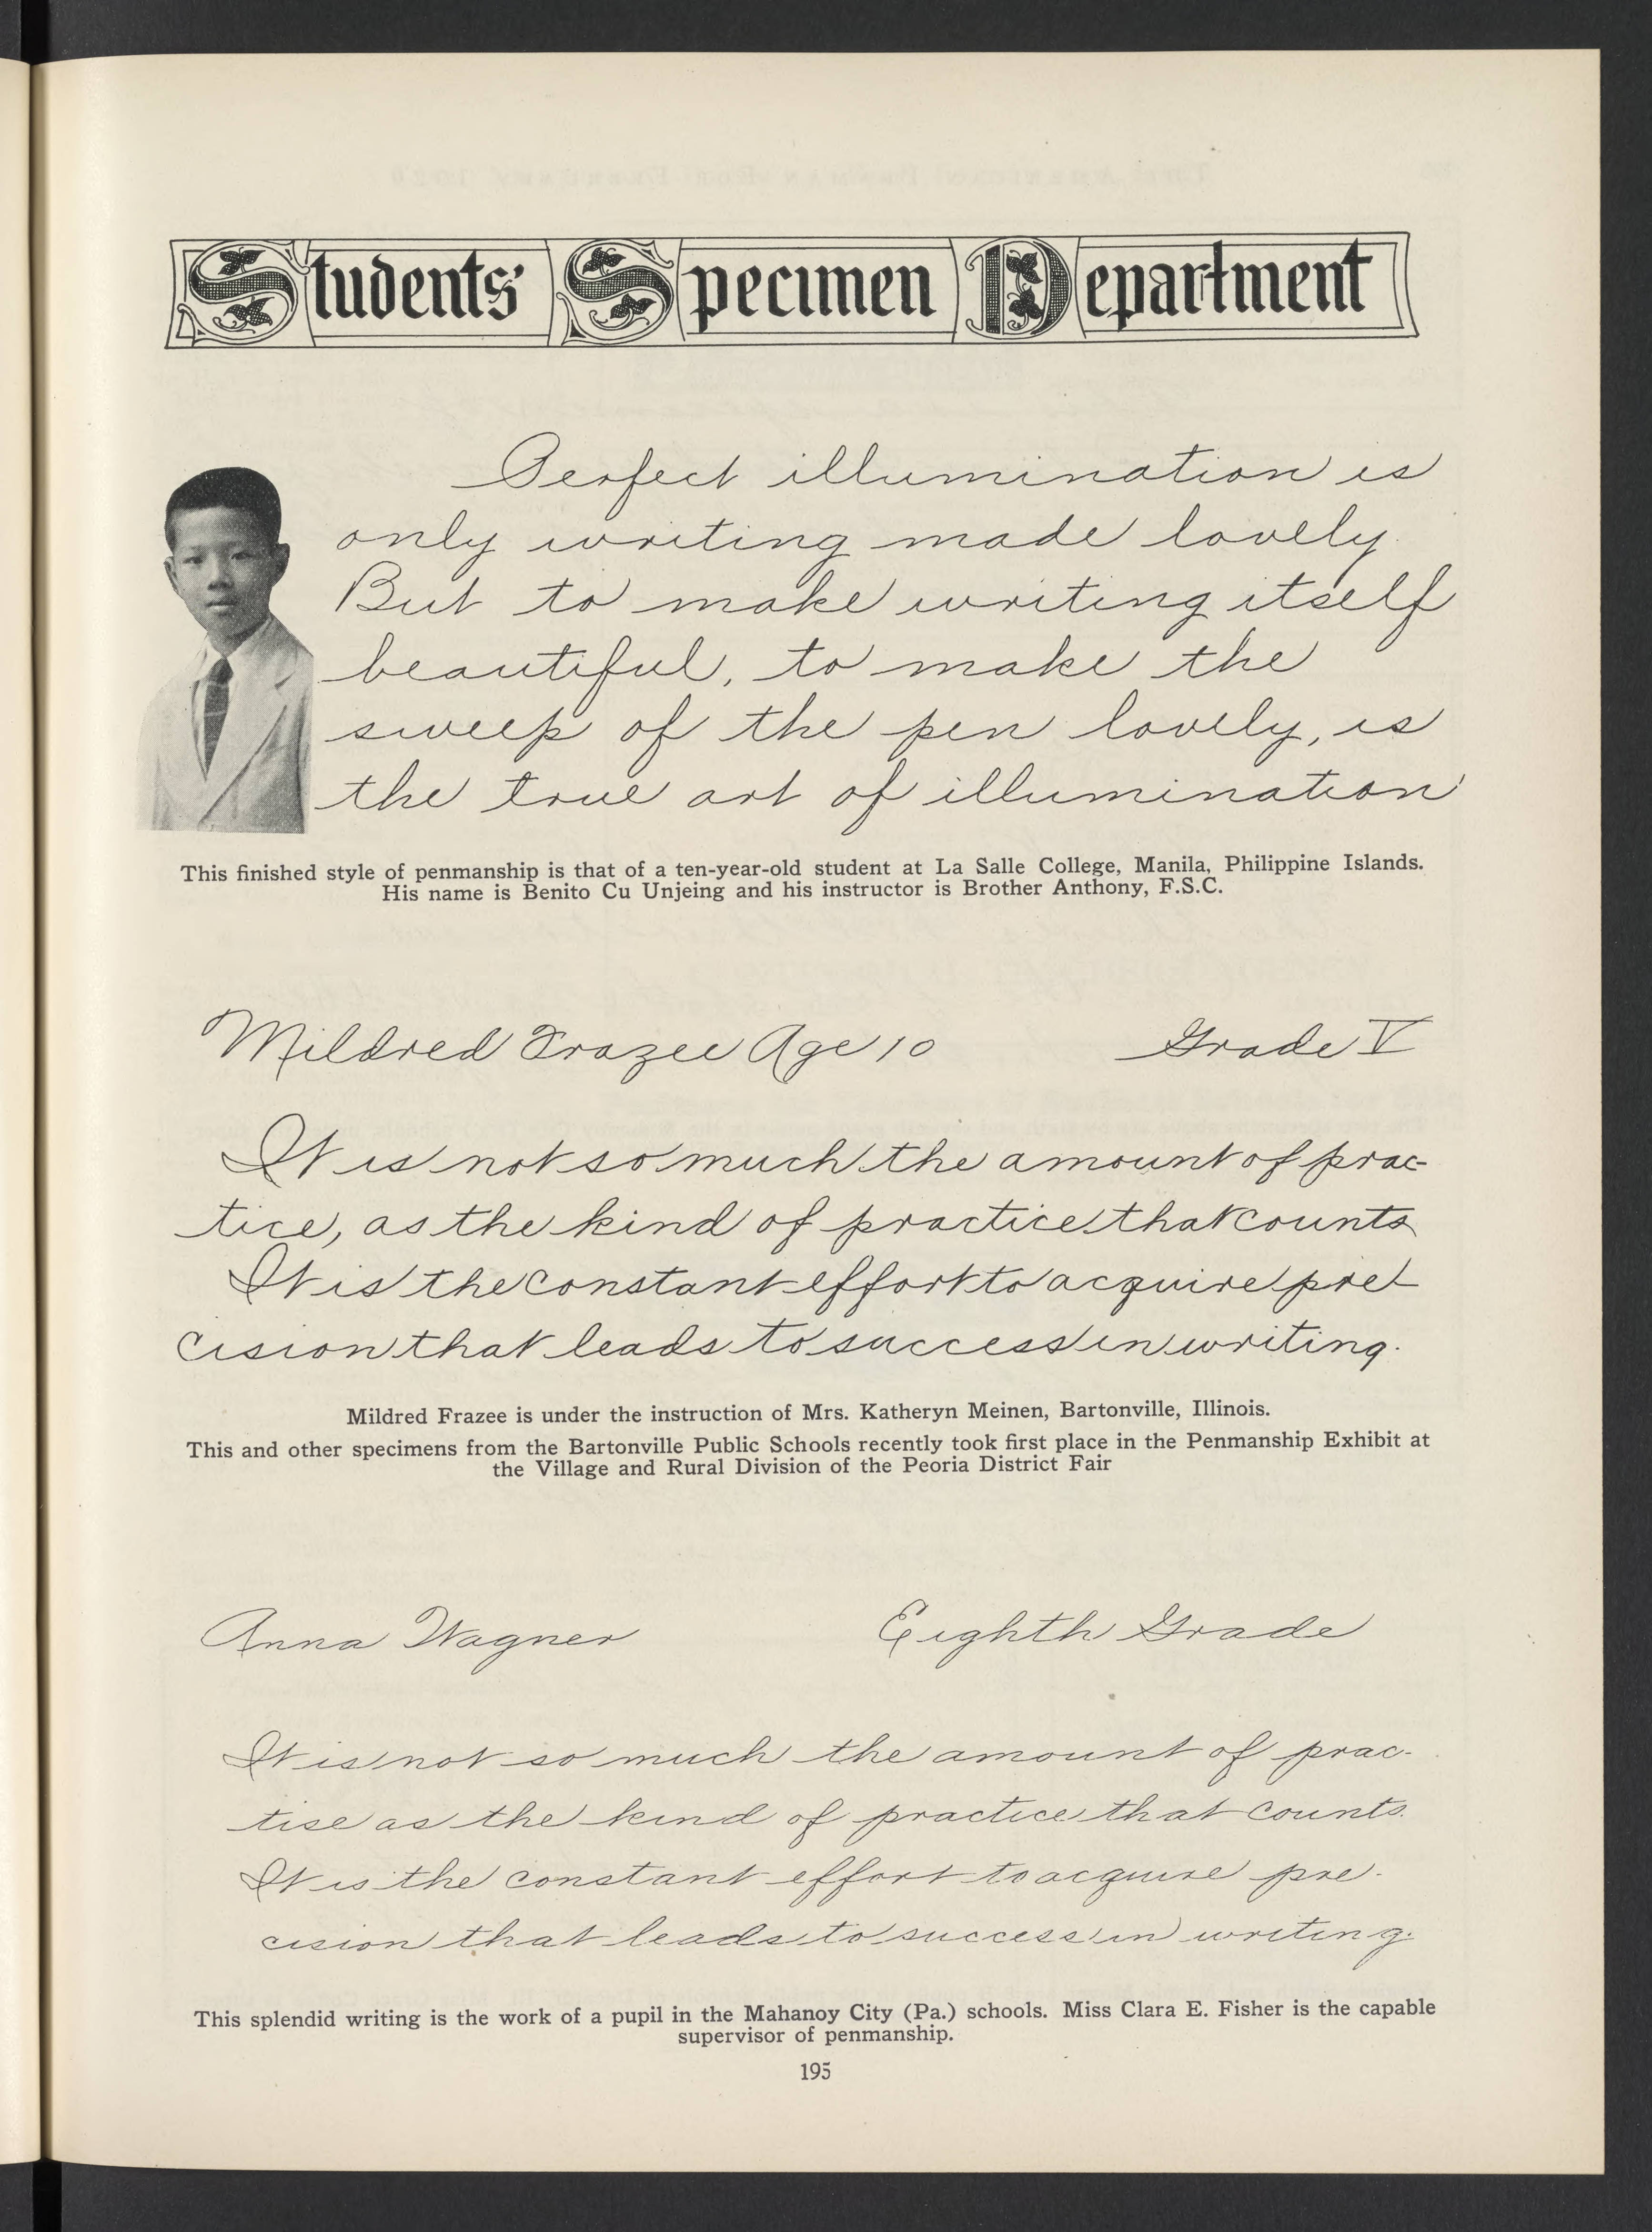 Students' Specimen Department
Perfect illumination is
only writing made lovely.
But to make writing itself
beautiful, to make the
sweep of the pen lovely, is
the true art of illumination
This finished style of penmanship is that of a ten-year-old student at La Salle College, Manila, Philippine Islands.
His name is Benito Cu Unjeing and his instructor is Brother Anthony, F.S.C.
Mildred Frazee Age 10 Grade V
It is not so much the amount of prac-
tice, as the kind of practice that counts
It is the constant effort to acquire pre-
cision that leads to success in writing.
Mildred Frazee is under the instruction of Mrs. Katheryn Meinen, Bartonville, Illinois.
This and other specimens from the Bartonville Public Schools recently took first place in the Penmanship Exhibit at
the Village and Rural Division of the Peoria District Fair
Anna Wagner Eighth Grade
It is not so much the amount of prac-
tise as the kind of practice that counts.
It is the constant effort to acquire pre-
cision that leads to success in writing.
This splendid writing is the work of a pupil in the Mahanoy City (Pa.) schools. Miss Clara E. Fisher is the capable
supervisor of penmanship.
195